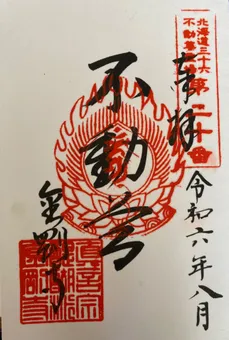 北海道三十六
不動尊霊場
第二十番
奉拝
不動尊
金剛寺
令和六年八月